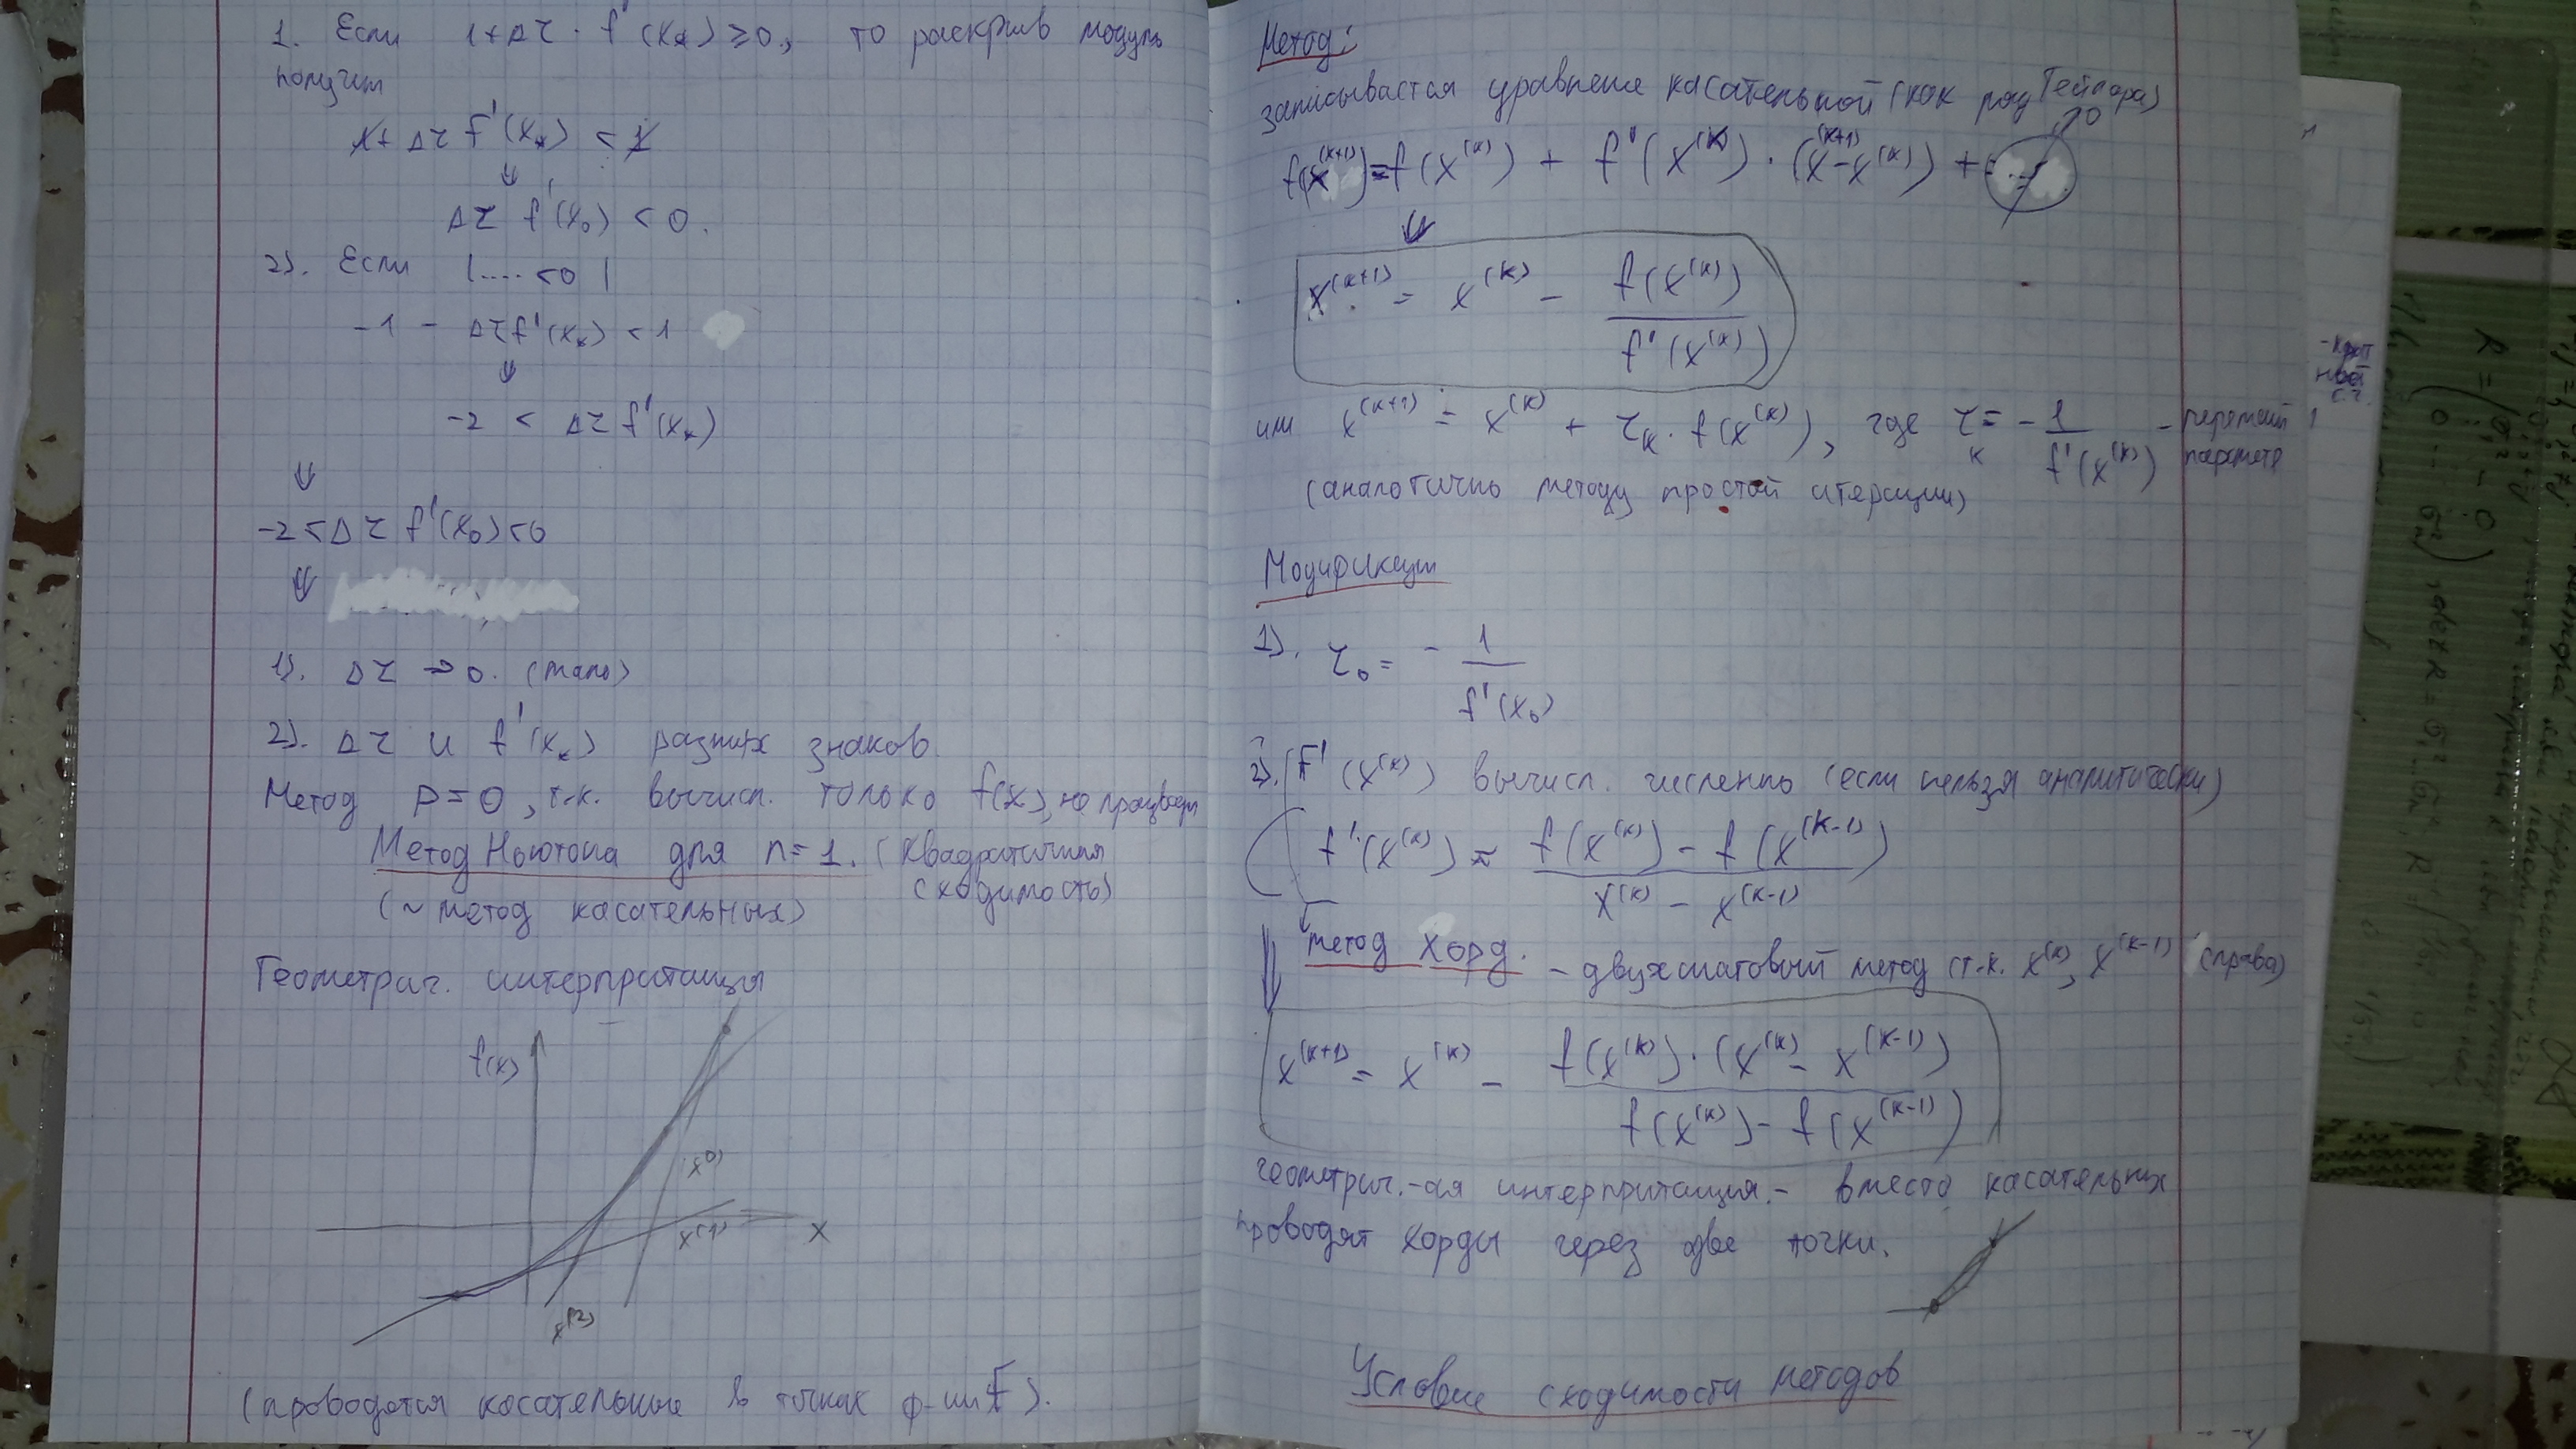 1. Если 1+Δτ · f'(xₖ) ≥ 0, то раскрыв модуль
получим
1 + Δτ f'(xₖ) < 1
⇓
Δτ f'(x₀) < 0.
2). Если |.... < 0|
-1 - Δτ f'(xₖ) < 1
⇓
-2 < Δτ f'(xₖ)
⇓
-2 < Δτ f'(x₀) < 0
⇓
1). Δτ → 0. (мало)
2). Δτ и f'(xₖ) разных знаков
Метод p=0, т.к. вычисл. только f(x), но
Метод Ньютона для n=1. (квадратичная
сходимость)
(~ метод касательных)
Геометрич. интерпретация
f(x)
x⁽⁰⁾
x⁽¹⁾
x⁽²⁾
x
(проводятся касательные в точках ф-ии f).
Метод:
записывается уравнение касательной (как ряд Тейлора)
f(x⁽ᵏ⁺¹⁾) = f(x⁽ᵏ⁾) + f'(x⁽ᵏ⁾) · (x⁽ᵏ⁺¹⁾ - x⁽ᵏ⁾) +
⇓
x⁽ᵏ⁺¹⁾ = x⁽ᵏ⁾ - f(x⁽ᵏ⁾) / f'(x⁽ᵏ⁾)
или x⁽ᵏ⁺¹⁾ = x⁽ᵏ⁾ + τₖ · f(x⁽ᵏ⁾), где τₖ = - 1 / f'(x⁽ᵏ⁾)
(аналогично методу простой итерации)
Модификации
1). τ₀ = - 1 / f'(x₀)
2). f'(x⁽ᵏ⁾) вычисл. численно (если нельзя аналитически)
f'(x⁽ᵏ⁾) ≈ (f(x⁽ᵏ⁾) - f(x⁽ᵏ⁻¹⁾)) / (x⁽ᵏ⁾ - x⁽ᵏ⁻¹⁾)
метод хорд. - двухшаговый метод (т.к. x⁽ᵏ⁾, x⁽ᵏ⁻¹⁾ справа)
x⁽ᵏ⁺¹⁾ = x⁽ᵏ⁾ - f(x⁽ᵏ⁾) · (x⁽ᵏ⁾ - x⁽ᵏ⁻¹⁾) / (f(x⁽ᵏ⁾) - f(x⁽ᵏ⁻¹⁾))
геометрич.-ая интерпритация - вместо касательных
проводят хорды через две точки.
Условие сходимости методов